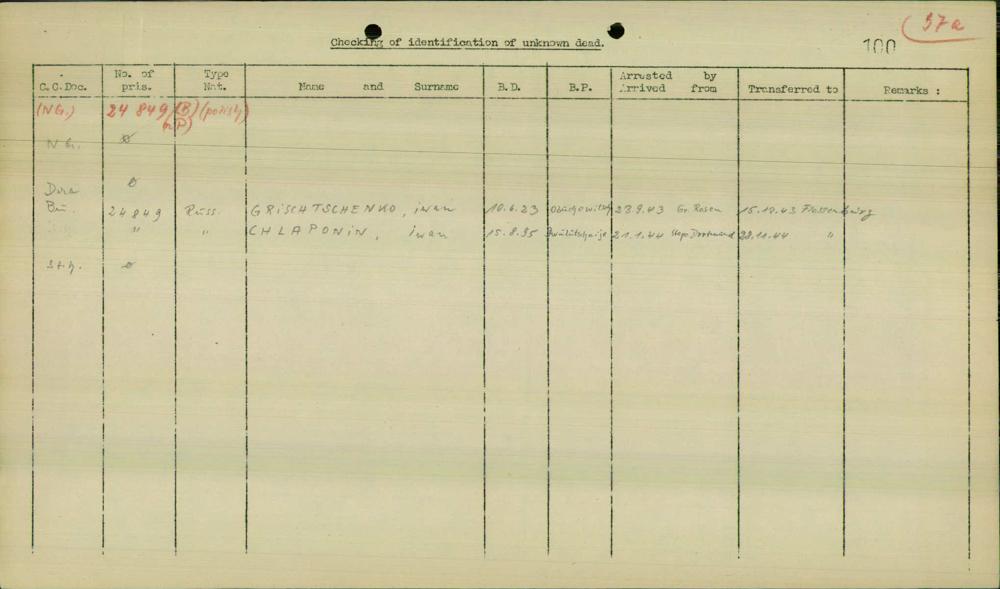 37a
100
Checking of identification of unknown dead.
C.C.Doc. No. of pris. Type Nat. Name and Surname B.D. B.P. Arrested by Arrived from Transferred to Remarks :
(NG.) 24 849 (B) (polish)
P)
N G. ø
Dora ø
Bu. 24849 Russ. GRISCHTSCHENKO, iwan 10.6.23 23.9.43 Gr. Rosen 15.10.43 Flossenbürg
" " CHLAPONIN, iwan 15.8.95 21.1.44 Stapo Dortmund 28.11.44 "
ø